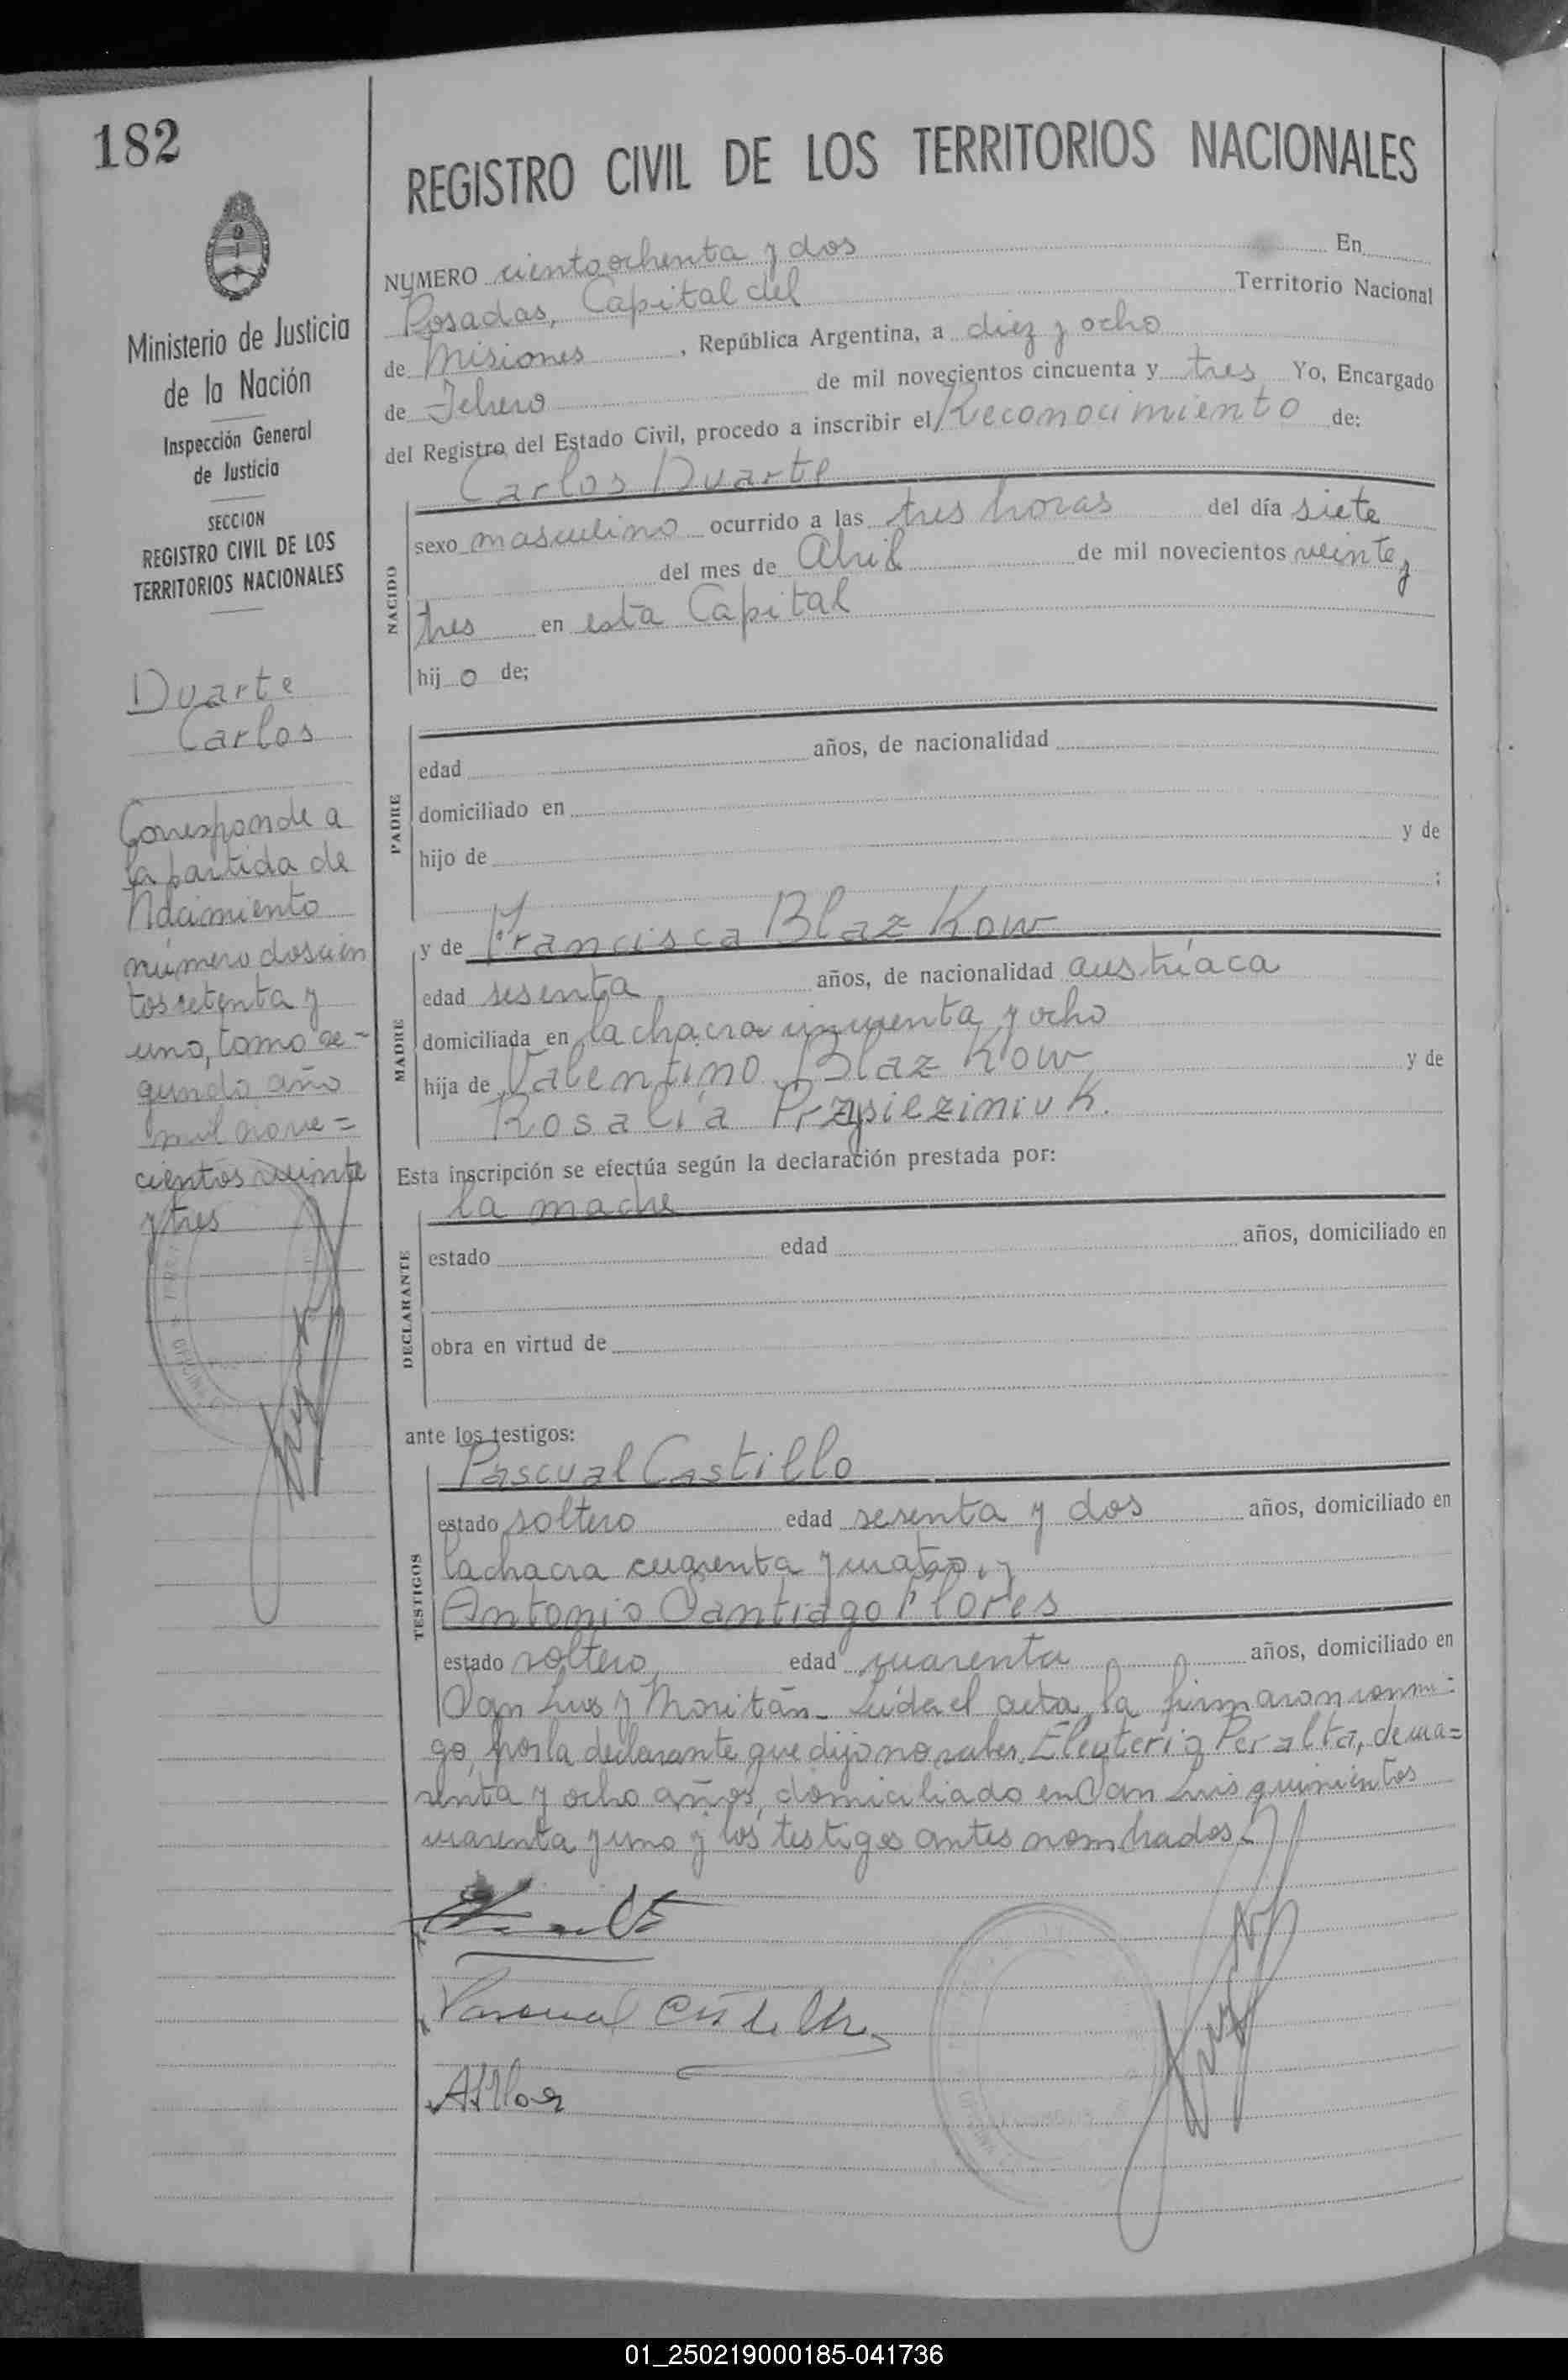 182
Ministerio de Justicia
de la Nación
Inspección General
de Justicia
SECCION
REGISTRO CIVIL DE LOS
TERRITORIOS NACIONALES
Duarte
Carlos
Corresponde a
la partida de
Nacimiento
número doscien
tos setenta y
uno, tomo se-
gundo año
mil nove=
cientos veinte
y tres
REGISTRO CIVIL DE LOS TERRITORIOS NACIONALES
NUMERO ciento ochenta y dos En
Posadas, Capital del Territorio Nacional
de Misiones, República Argentina, a diez y ocho
de Febrero de mil novecientos cincuenta y tres Yo, Encargado
del Registro del Estado Civil, procedo a inscribir el Reconocimiento de:
Carlos Duarte
NACIDO
sexo masculino ocurrido a las tres horas del día siete
del mes de Abril de mil novecientos veinte y
tres en esta Capital
hij o de;
PADRE
edad años, de nacionalidad
domiciliado en
hijo de y de
;
MADRE
y de Francisca Blaz Kow
edad sesenta años, de nacionalidad austríaca
domiciliada en la chacra cincuenta y ocho
hija de Valentino Blaz Kow y de
Rosalía Przysieziniuk.
Esta inscripción se efectúa según la declaración prestada por:
la madre
DECLARANTE
estado edad años, domiciliado en
obra en virtud de
ante los testigos:
TESTIGOS
Pascual Castillo
estado soltero edad sesenta y dos años, domiciliado en
la chacra cuarenta y cuatro, y
Antonio Santiago Flores
estado soltero, edad cuarenta años, domiciliado en
San Luis y Moritán. Leída el acta, la firmaron conmi=
go, por la declarante que dijo no saber, Eleuterio Peralta, de cua=
renta y ocho años, domiciliado en San Luis quinientos
cuarenta y uno y los testigos antes nombrados.
Pascual Castillo
ASFlores
01_250219000185-041736